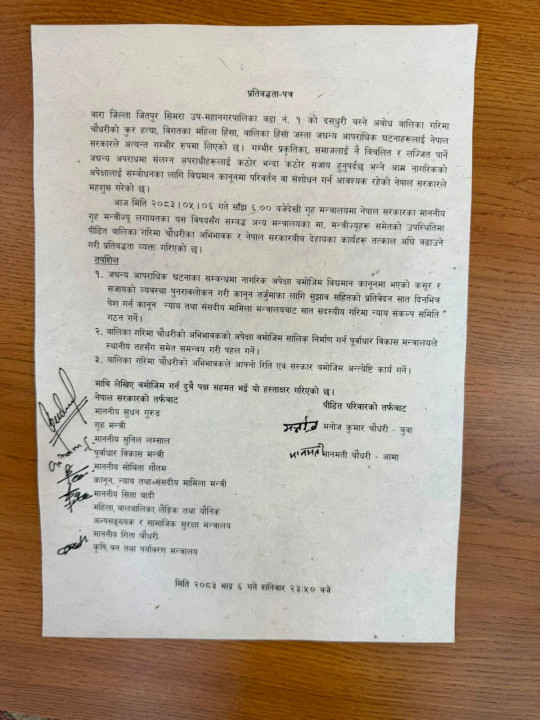 प्रतिवद्धता-पत्र
बारा जिल्ला जितपुर सिमरा उप-महानगरपालिका वडा नं. १ को दसधुरी बस्ने अबोध बालिका गरिमा
चौधरीको क्रुर हत्या, विगतका महिला हिंसा, बालिका हिंसा जस्ता जघन्य आपराधिक घटनाहरूलाई नेपाल
सरकारले अत्यन्त गम्भीर रुपमा लिएको छ। गम्भीर प्रकृतिका, समाजलाई नै विचलित र लज्जित पार्ने
जघन्य अपराधमा संलग्न अपराधीहरूलाई कठोर भन्दा कठोर सजाय हुनुपर्दछ भन्ने आम नागरिकको
अपेक्षालाई सम्बोधनका लागि विद्यमान कानूनमा परिवर्तन वा संशोधन गर्न आवश्यक रहेको नेपाल सरकारले
महशुस गरेको छ।
आज मिति २०८३।०५।०६ गते साँझ ६.०० बजेदेखी गृह मन्त्रालयमा नेपाल सरकारका माननीय
गृह मन्त्रीज्यु लगायतका यस विषयसँग सम्बद्ध अन्य मन्त्रालयका मा. मन्त्रीज्यूहरू समेतको उपस्थितिमा
पीडित बालिका गरिमा चौधरीका अभिभावक र नेपाल सरकारवीच देहायका कार्यहरू तत्काल अघि बढाउने
गरी प्रतिबद्धता व्यक्त गरिएको छ।
तपशिल
१. जघन्य आपराधिक घटनाका सम्वन्धमा नागरिक अपेक्षा बमोजिम विद्यमान कानूनमा भएको कसूर र
सजायको व्यवस्था पुनरावलोकन गरी कानून तर्जुमाका लागि सुझाव सहितको प्रतिवेदन सात दिनभित्र
पेश गर्न कानून न्याय तथा संसदीय मामिला मन्त्रालयबाट सात सदस्यीय गरिमा न्याय संकल्प समिति
गठन गर्ने।
२. बालिका गरिमा चौधरीको अभिभावकको अपेक्षा वमोजिम सालिक निर्माण गर्न पूर्वाधार विकास मन्त्रालयले
स्थानीय तहसँग समेत समन्वय गरी पहल गर्ने।
३. बालिका गरिमा चौधरीको अभिभावकले आफ्नो रिति एवं संस्कार वमोजिम अन्त्येष्टि कार्य गर्ने।
माथि लेखिए बमोजिम गर्न दुवै पक्ष सहमत भई यो हस्ताक्षर गरिएको छ।
नेपाल सरकारको तर्फबाट
माननीय सुधन गुरुङ
गृह मन्त्री
माननीय सुनिल लम्साल
पूर्वाधार विकास मन्त्री
माननीय सोविता गौतम
कानून, न्याय तथा संसदीय मामिला मन्त्री
माननीय सिता वादी
महिला, बालबालिका, लैङ्गिक तथा यौनिक
अल्पसङ्ख्यक र सामाजिक सुरक्षा मन्त्रालय
माननीय गिता चौधरी
कृषि, वन तथा पर्यावरण मन्त्रालय
पीडित परिवारको तर्फबाट
मनोज कुमार चौधरी - बुवा
मानमती मानमती चौधरी - आमा
मिति २०८३ भाद्र ६ गते शनिवार २३:५० बजे